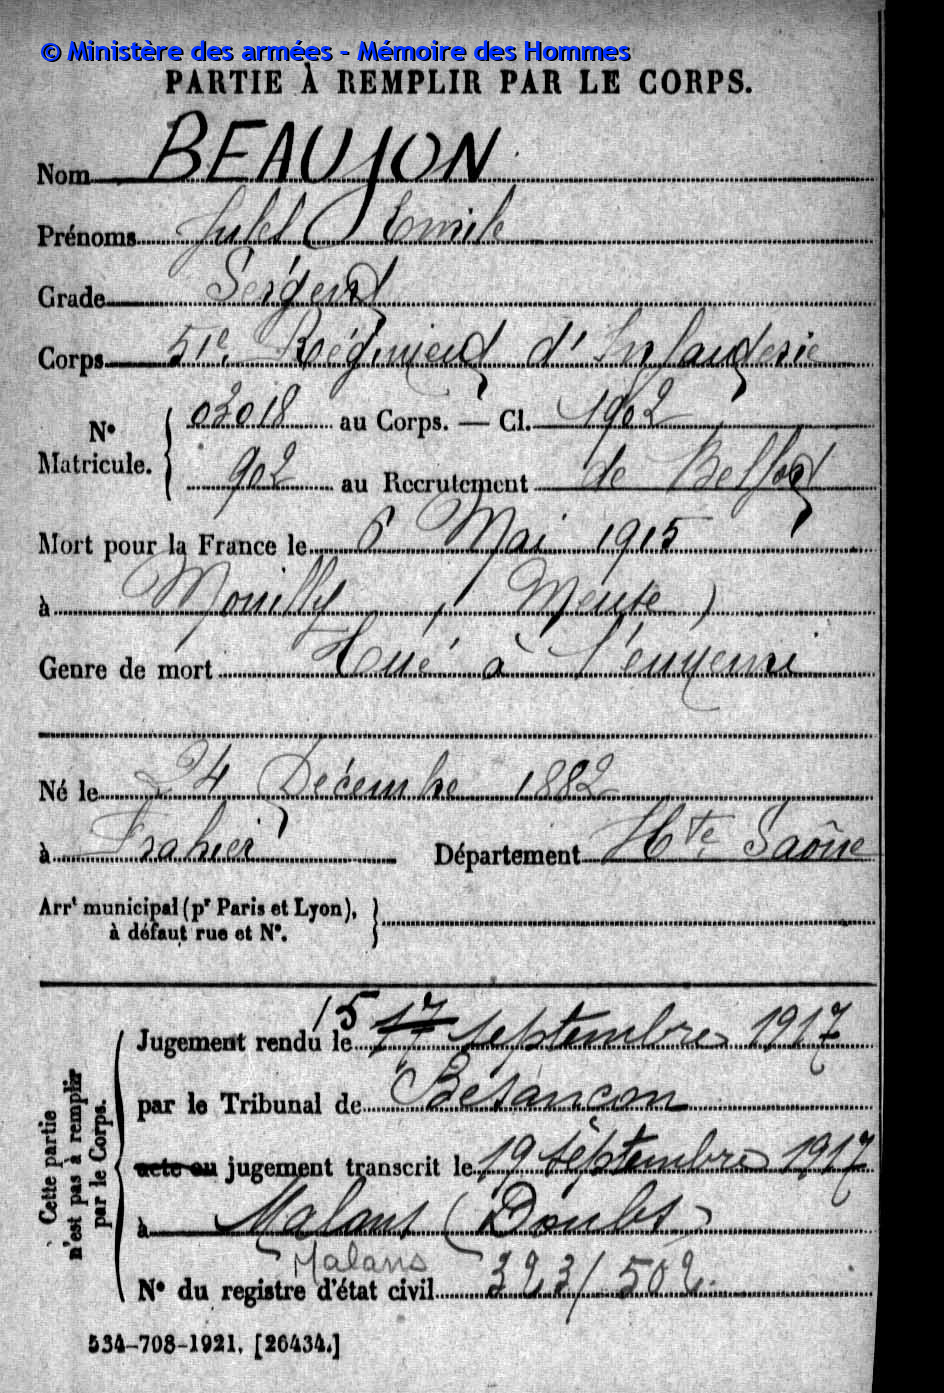 © Ministère des armées - Mémoire des Hommes
PARTIE À REMPLIR PAR LE CORPS.
Nom BEAUJON
Prénoms Jules Emile
Grade Sergent
Corps 51e Régiment d'Infanterie
N° Matricule. { 03018 au Corps. — Cl. 1902
902 au Recrutement de Belfort
Mort pour la France le 6 Mai 1915
à Mouilly (Meuse)
Genre de mort Tué à l'ennemi
Né le 24 Décembre 1882
à Frahier Département Hte Saône
Arrt municipal (pr Paris et Lyon),
à défaut rue et N°.
Cette partie n'est pas à remplir par le Corps.
Jugement rendu le 15 17 septembre 1917
par le Tribunal de Besançon
acte ou jugement transcrit le 19 septembre 1917
à Malans (Doubs)
Malans
N° du registre d'état civil 323/502
534-708-1921. [26434.]